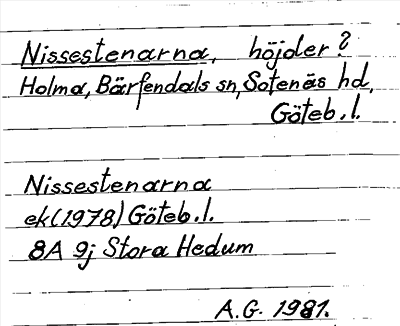 Nissestenarna, höjder?
Holma, Bärfendals sn, Sotenäs hd,
Göteb.l.
Nissestenarna
ek(1978) Göteb.l.
8A 9j Stora Hedum
A.G. 1981.